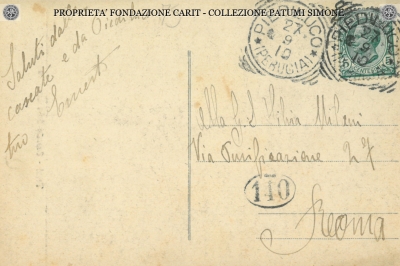 PROPRIETA' FONDAZIONE CARIT - COLLEZIONE PATUMI SIMONE
Saluti dalle
cascate e da Piediluco
tuo Ernesto
PIEDILUCO
27
9
10
(PERUGIA)
Alla G. S. Silvia Milani
Via Purificazione 27
140
Roma